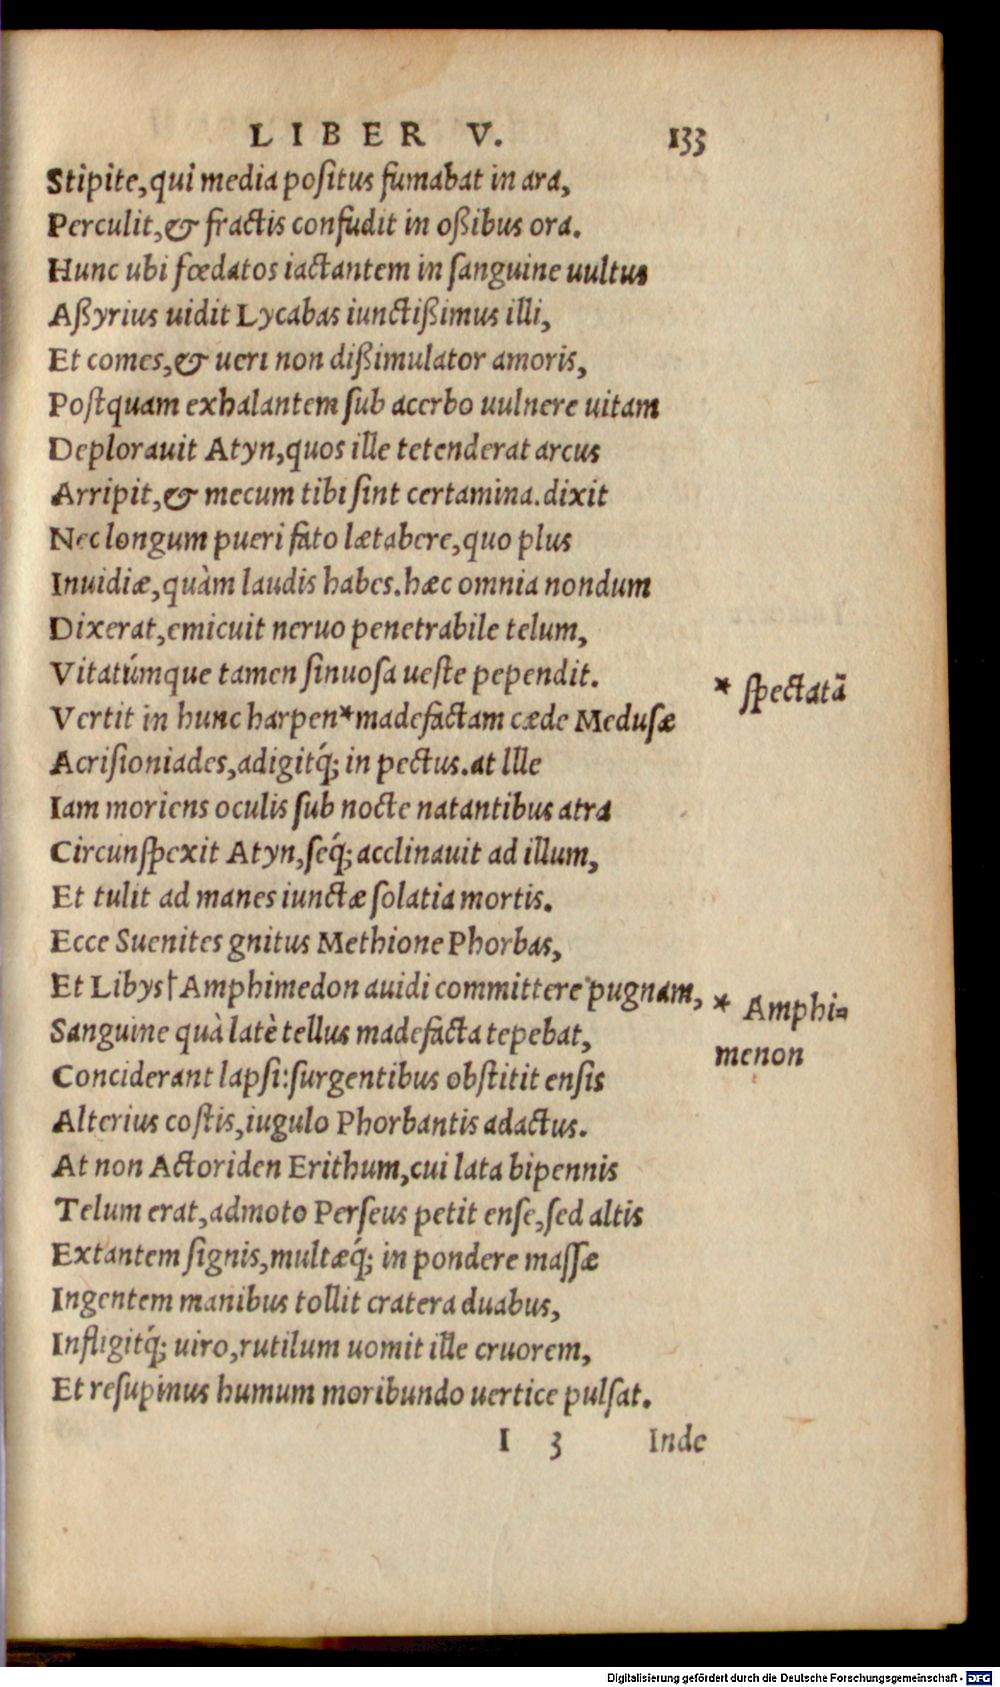 LIBER V. 133
Stipite, qui media positus fumabat in ara,
Perculit, & fractis confudit in oßibus ora.
Hunc ubi fœdatos iactantem in sanguine uultus
Aßyrius uidit Lycabas iunctißimus illi,
Et comes, & ueri non dißimulator amoris,
Postquam exhalantem sub acerbo uulnere uitam
Deplorauit Atyn, quos ille tetenderat arcus
Arripit, & mecum tibi sint certamina. dixit
Nec longum pueri fato lætabere, quo plus
Inuidiæ, quàm laudis habes. hæc omnia nondum
Dixerat, emicuit neruo penetrabile telum,
Vitatúmque tamen sinuosa ueste pependit.
* spectatã
Vertit in hunc harpen*madefactam cæde Medusæ
Acrisioniades, adigitq́; in pectus. at Ille
Iam moriens oculis sub nocte natantibus atra
Circunspexit Atyn, seq́; acclinauit ad illum,
Et tulit ad manes iunctæ solatia mortis.
Ecce Suenites gnitus Methione Phorbas,
Et Libys† Amphimedon auidi committere pugnam,
* Amphi=
menon
Sanguine quà latè tellus madefacta tepebat,
Conciderant lapsi: surgentibus obstitit ensis
Alterius costis, iugulo Phorbantis adactus.
At non Actoriden Erithum, cui lata bipennis
Telum erat, admoto Perseus petit ense, sed altis
Extantem signis, multæq́; in pondere massæ
Ingentem manibus tollit cratera duabus,
Infligitq́; uiro, rutilum uomit ille cruorem,
Et resupinus humum moribundo uertice pulsat.
I 3 Inde
Digitalisierung gefördert durch die Deutsche Forschungsgemeinschaft - DFG